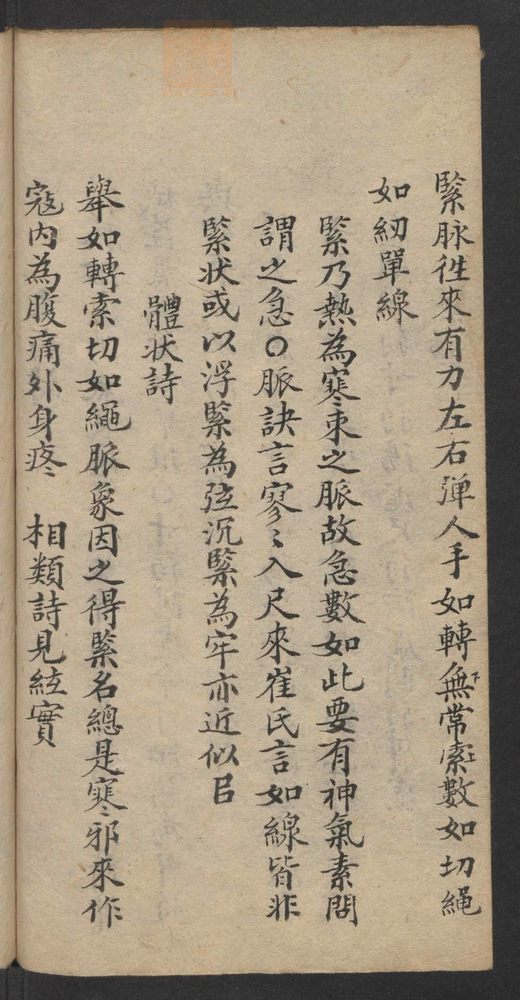 緊脉徃來有力左右弹人手如轉無常索數如切繩
如紉單線
緊乃熱為寒束之脈故急數如此要有神氣素問
謂之急○脈訣言寥〻入尺來崔氏言如線皆非
緊状或以浮緊為弦沉緊為牢亦近似㠯
體状詩
舉如轉索切如繩脈象因之得緊名總是寒邪來作
寇内為腹痛外身疼 相類詩見絃實